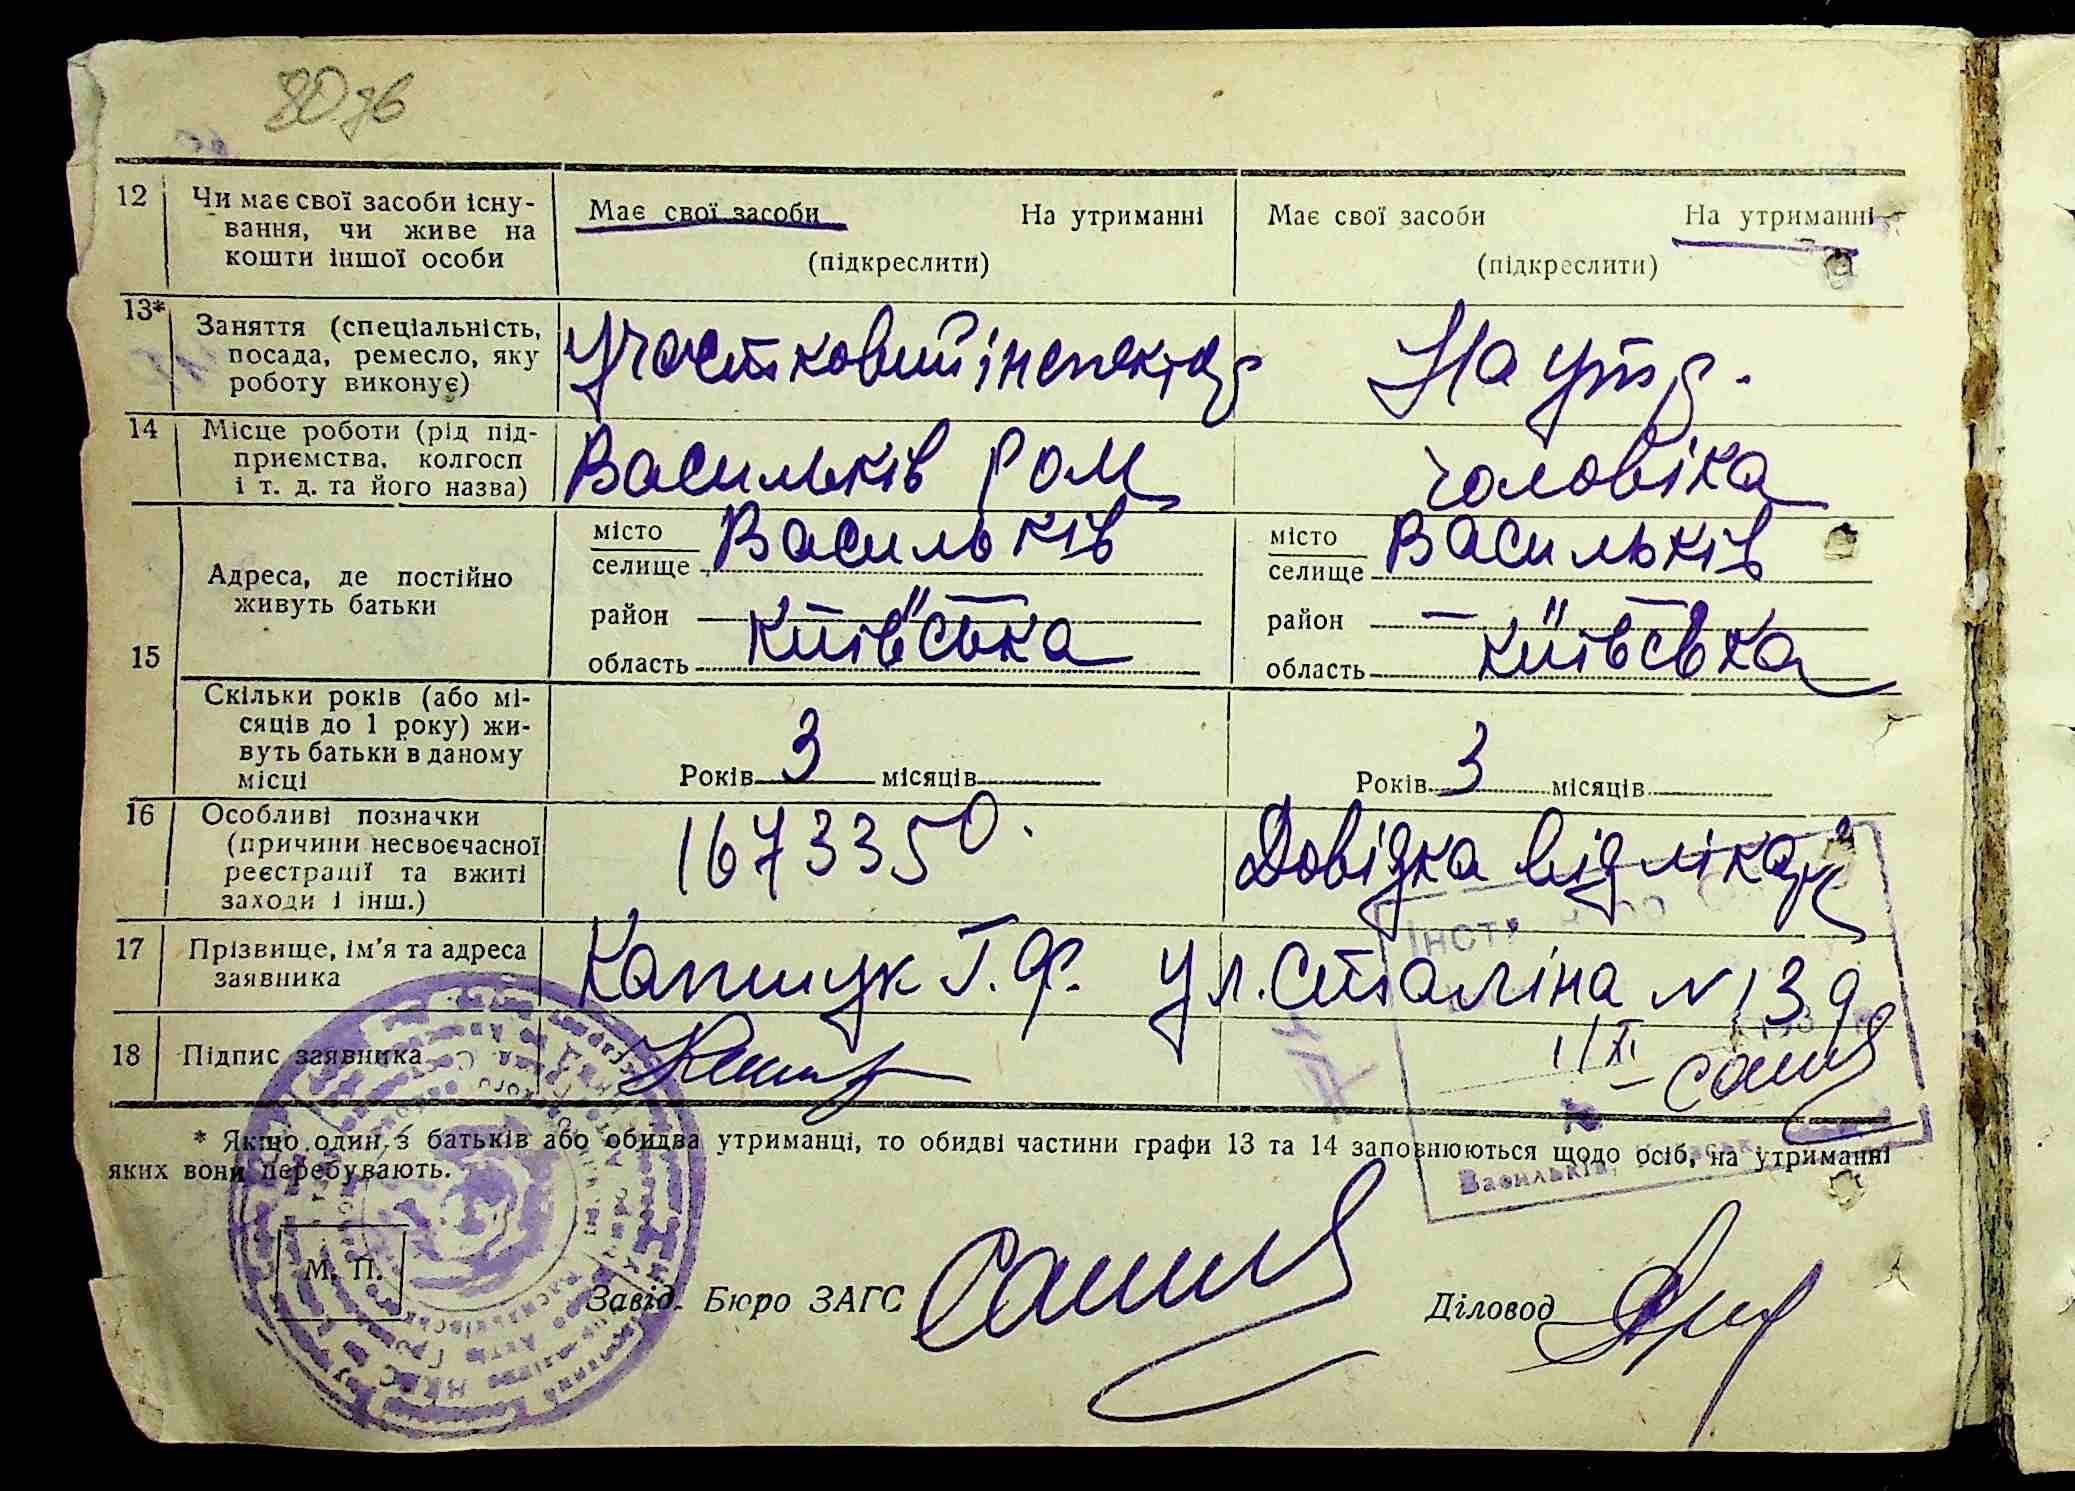 12 Чи має свої засоби існу- Має свої засоби На утриманні Має свої засоби На утриманні
вання, чи живе на
кошти іншої особи (підкреслити) (підкреслити)
13* Заняття (спеціальність, Участковий інспектор На утр.
посада, ремесло, яку
роботу виконує)
14 Місце роботи (рід під- Васильків РОМ чоловіка
приємства, колгосп
і т. д. та його назва)
15 Адреса, де постійно місто Васильків місто Васильків
живуть батьки селище селище
район — " — район — " —
область Київська область Київська
Скільки років (або мі-
сяців до 1 року) жи-
вуть батьки в даному
місці Років 3 місяців Років 3 місяців
16 Особливі позначки 1673350. Довідка від лікаря
(причини несвоєчасної
реєстрації та вжиті
заходи і інш.)
17 Прізвище, ім'я та адреса Г. Ф. ул. Сталіна N 139
заявника
18 Підпис заявника 1/XI
* Якщо один з батьків або обидва утриманці, то обидві частини графи 13 та 14 заповнюються щодо осіб, на утриманні
яких вони перебувають.
М. П.
Завід. Бюро ЗАГС Діловод